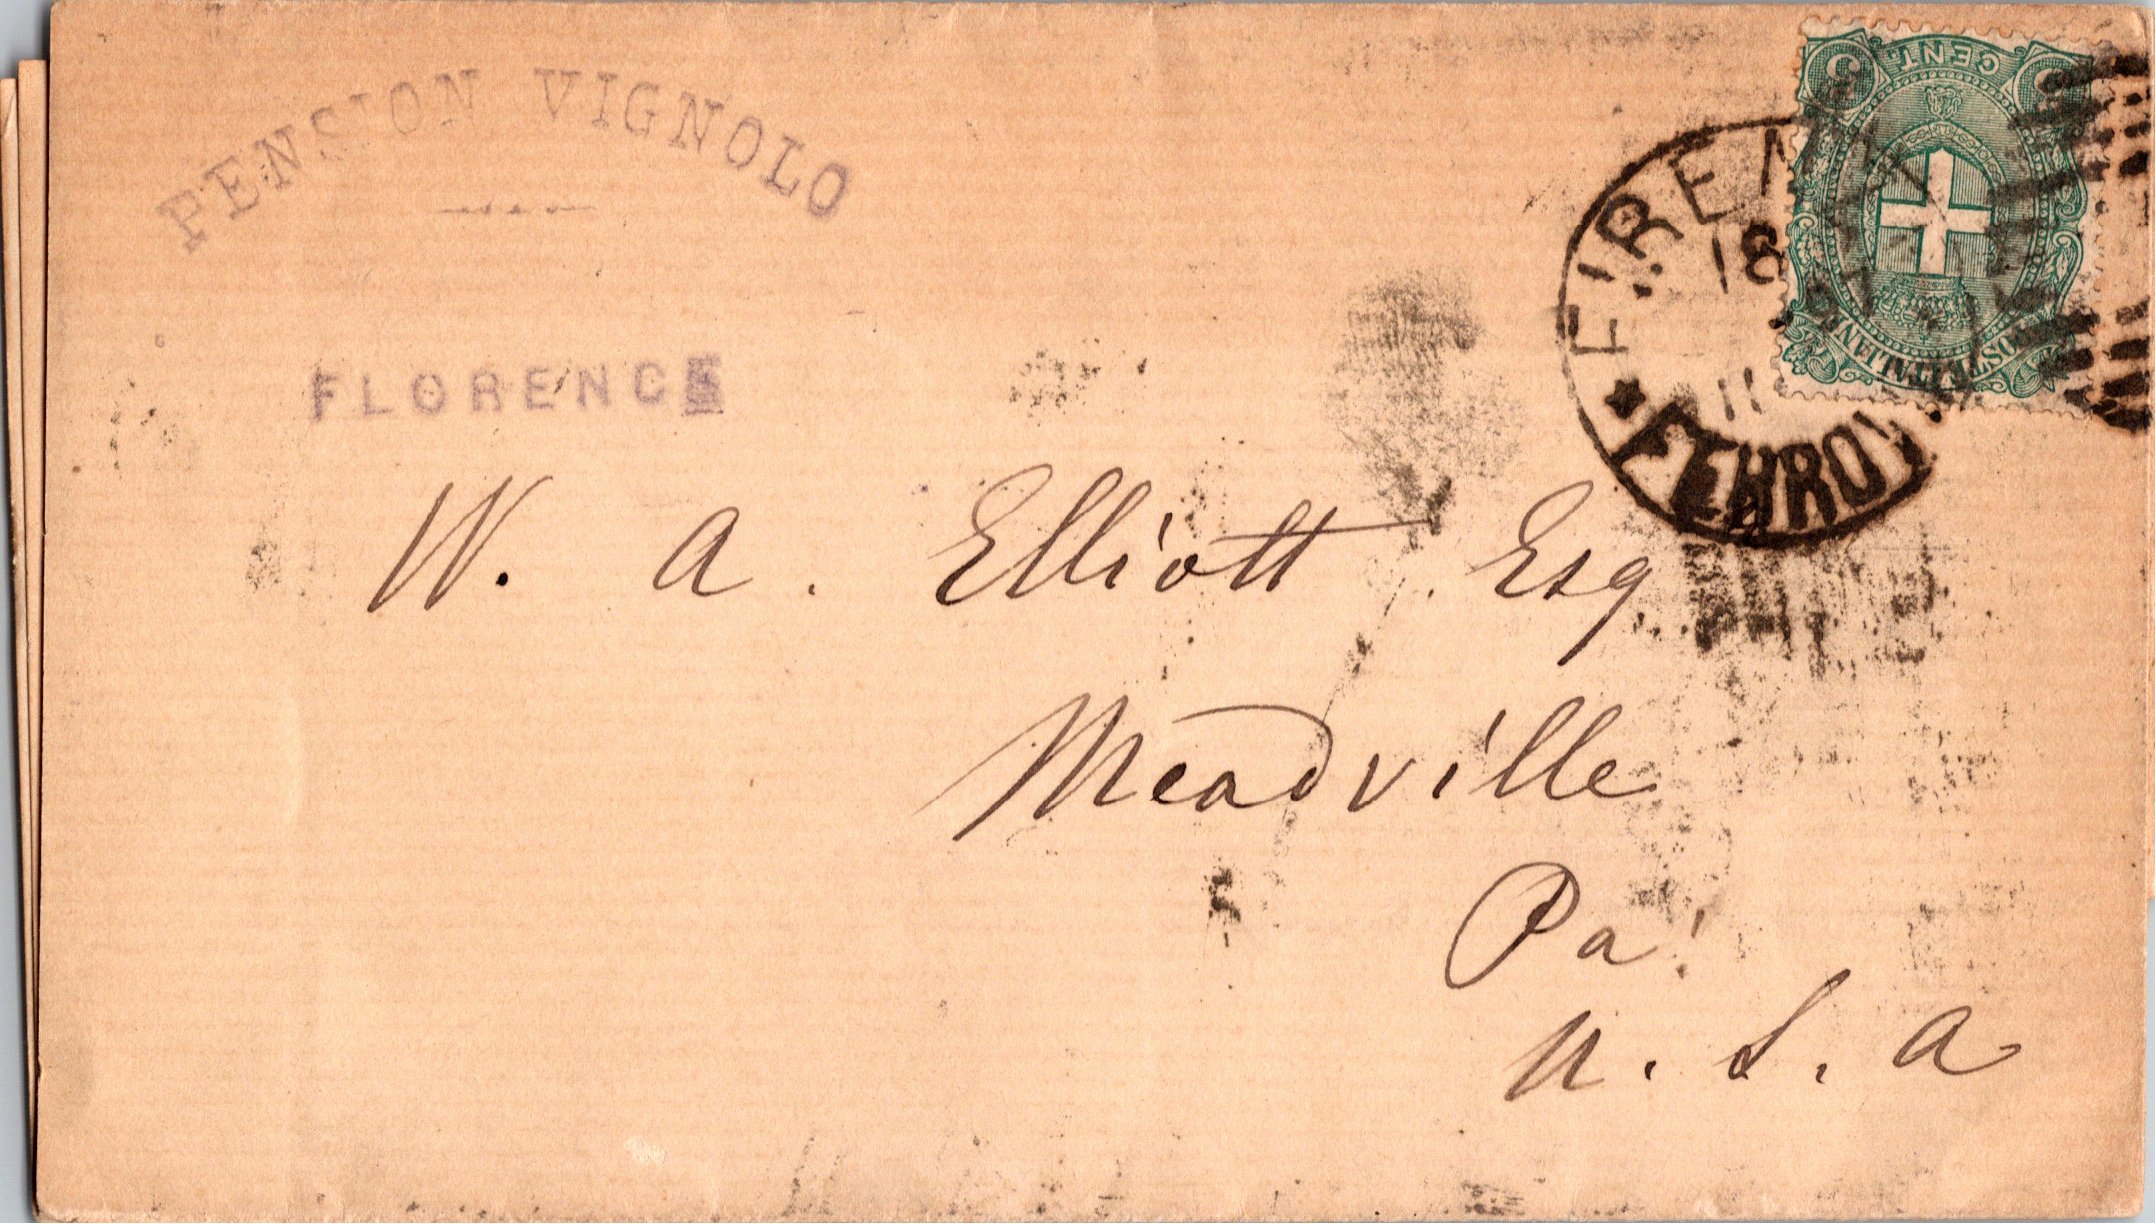 PENSION VIGNOLO
FLORENCE
CENT.
5 5
FIRENZ
18
11
FERROV
W. A. Elliott Esq
Meadville
Pa.
U. S. A